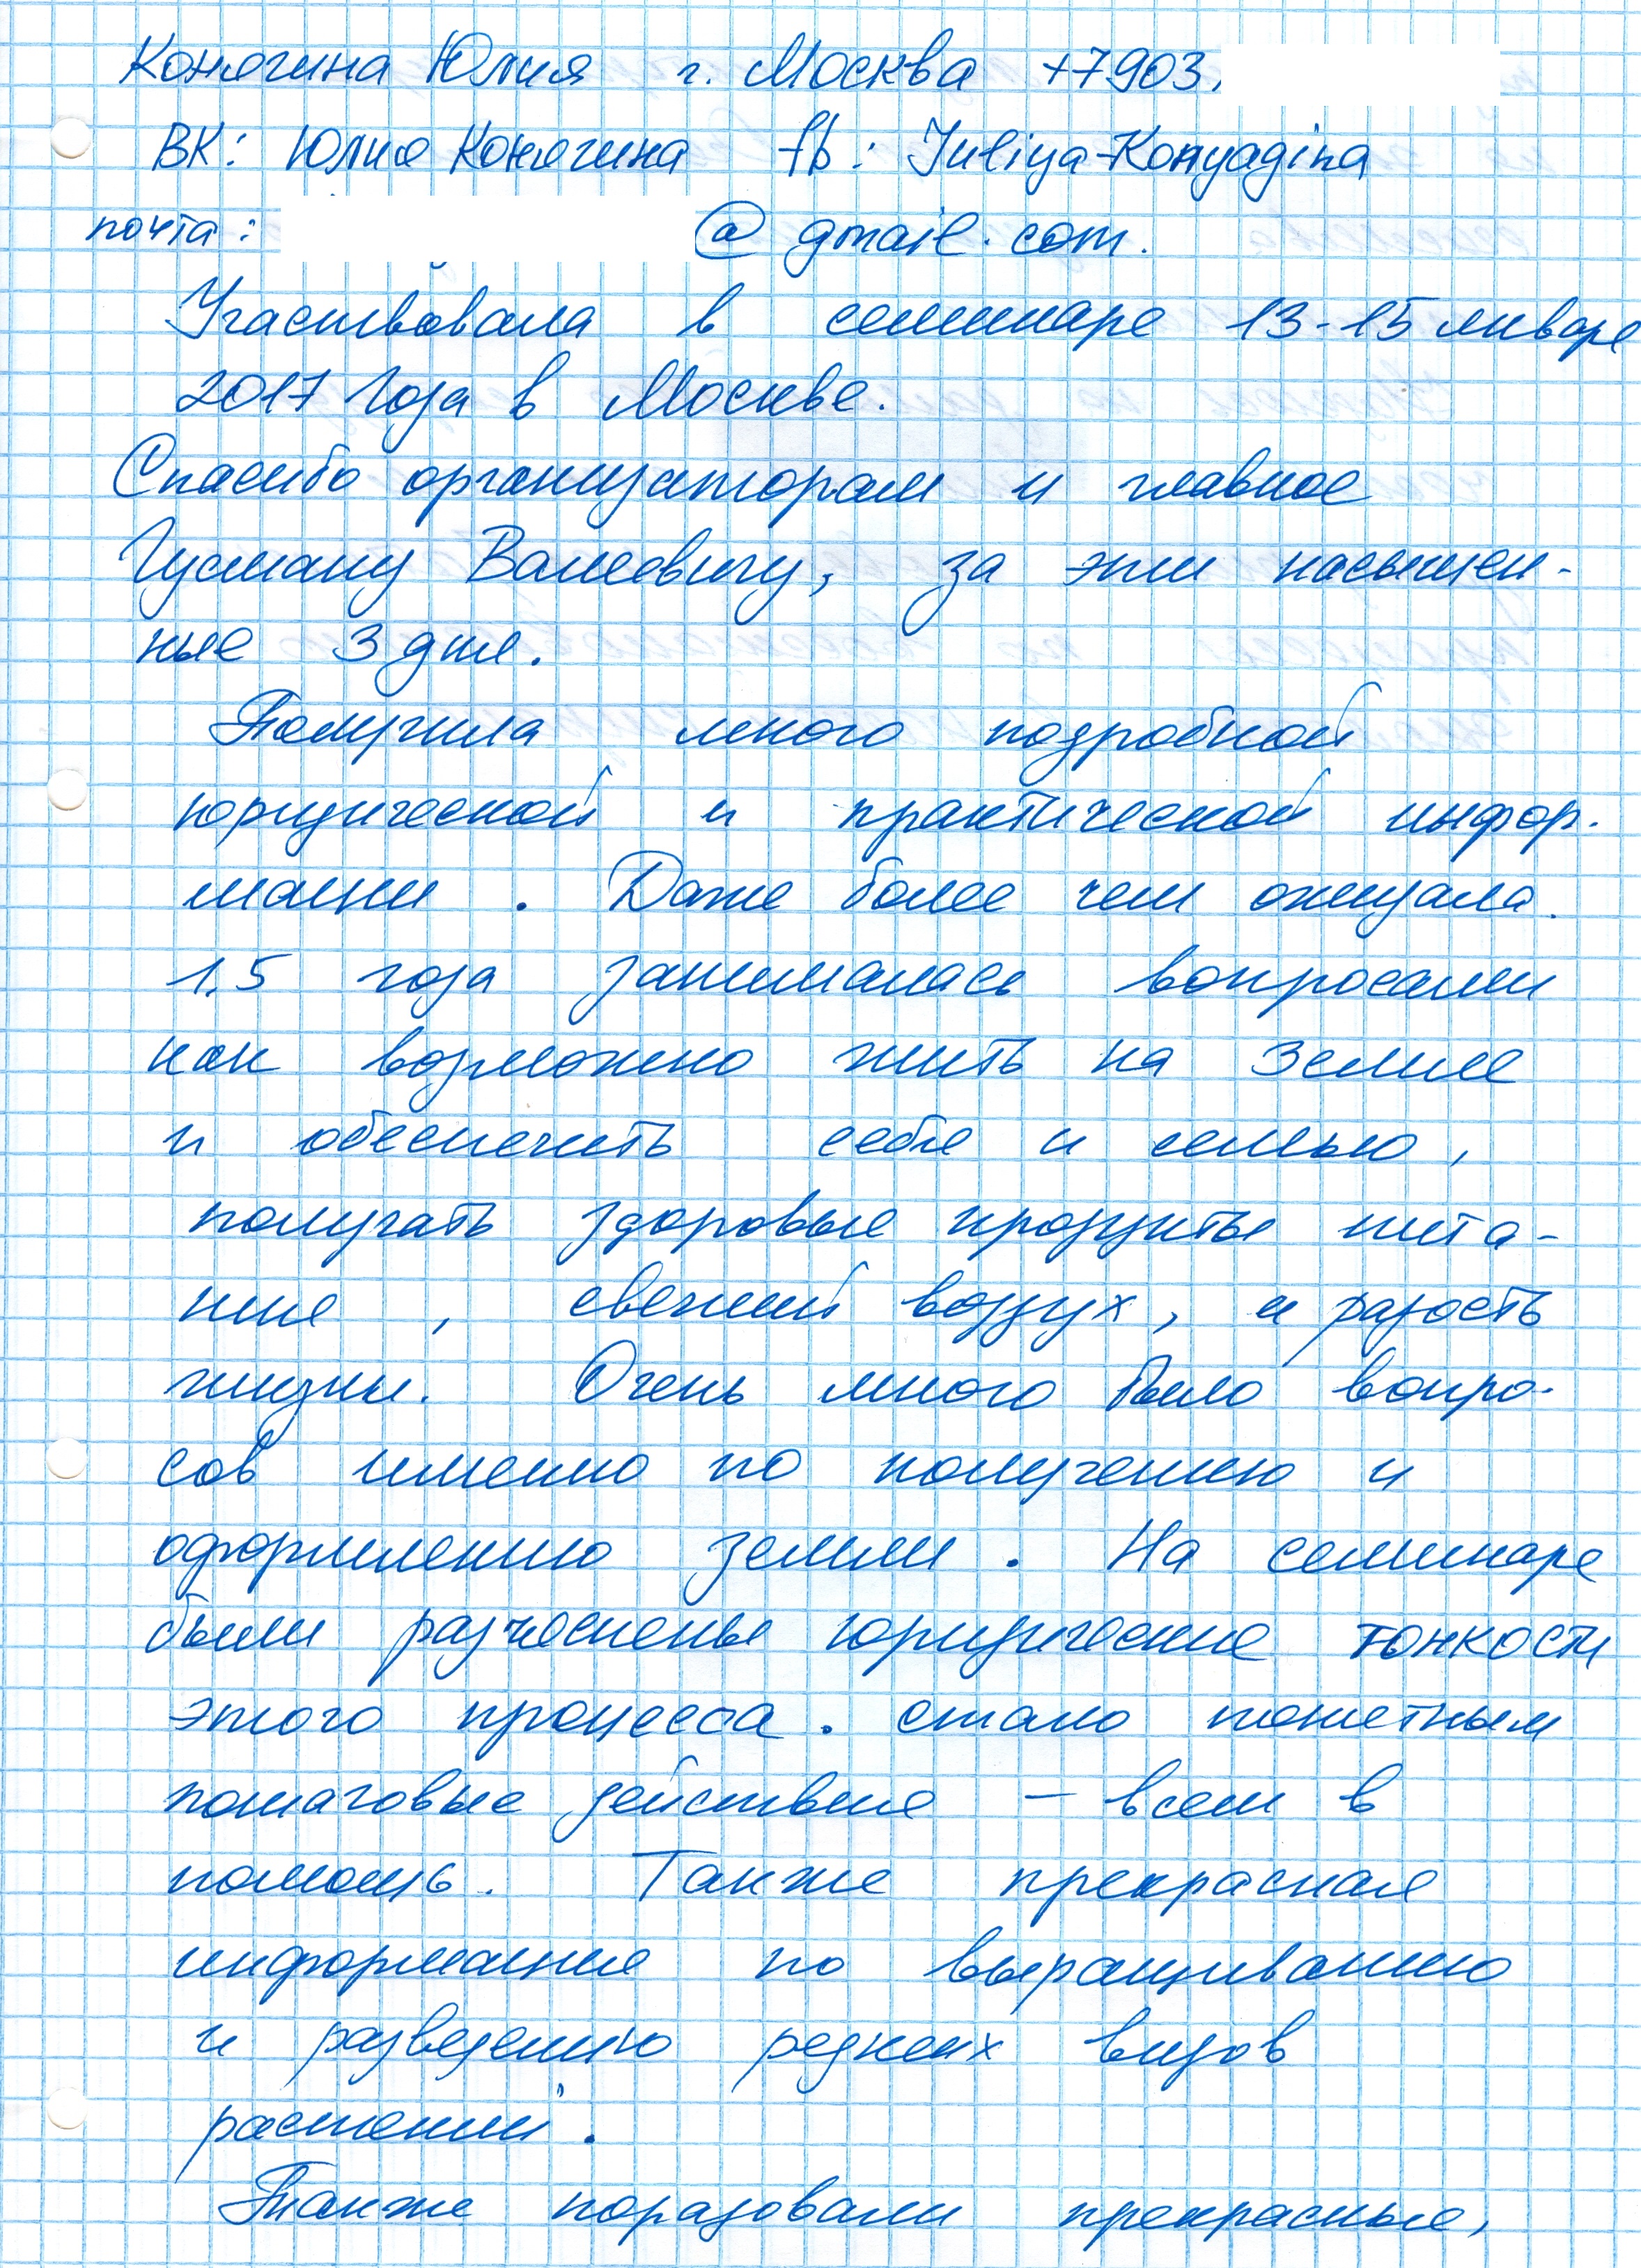 Конягина Юлия г. Москва +7903.
ВК: Юлия Конягина fb: Iuliya Konyagina
почта: @ gmail.com.
Участвовала в семинаре 13-15 января
2017 года в Москве.
Спасибо организаторам и главное
Гусману Валеевичу, за эти насыщен-
ные 3 дня.
Получила много подробной
юридической и практической инфор-
мации. Даже более чем ожидала.
1,5 года занималась вопросами
как возможно жить на Земле
и обеспечить себя и семью,
получать здоровые продукты пита-
ния, свежий воздух, и радость
жизни. Очень много было вопро-
сов именно по получению и
оформлению земли. На семинаре
были разъяснены юридические тонкости
этого процесса. стало понятным
пошаговые действия – всем в
помощь. Также прекрасная
информация по выращиванию
и разведению редких видов
растений.
Также порадовали прекрасные,